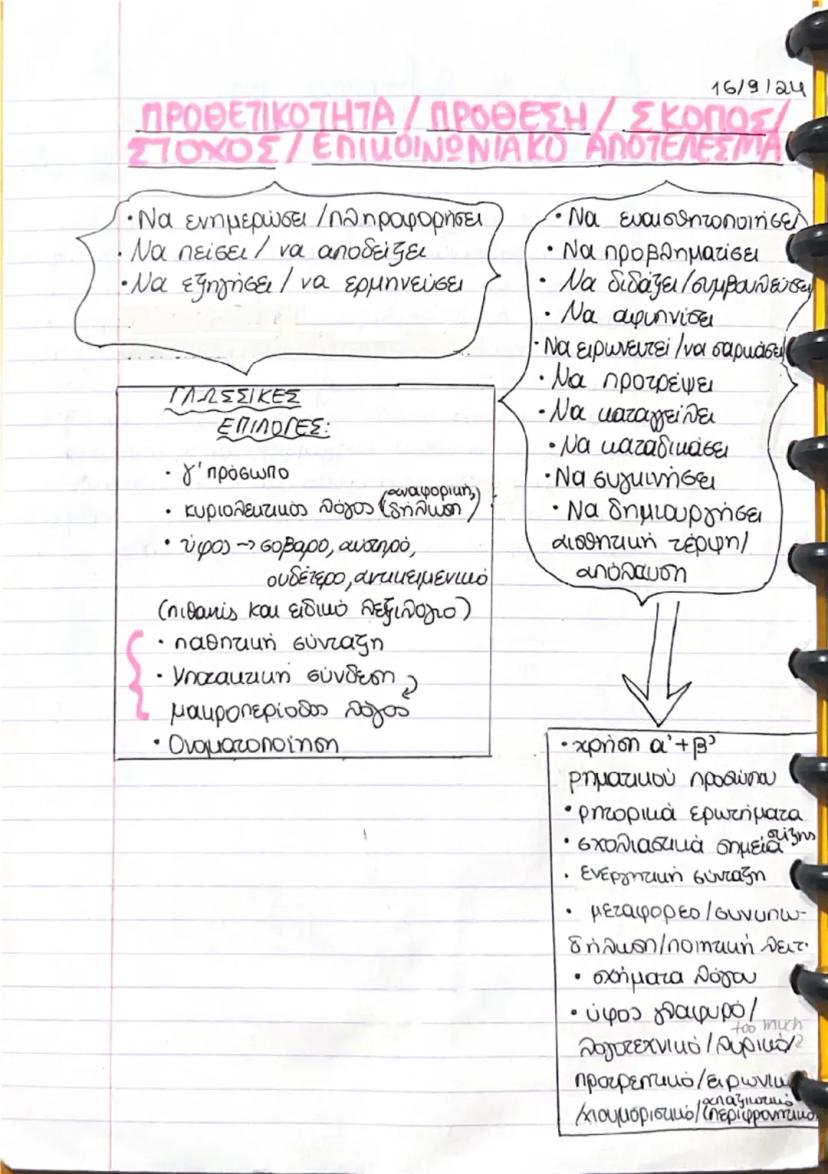 16/9/24
ΠΡΟΘΕΤΙΚΟΤΗΤΑ / ΠΡΟΘΕΣΗ / ΣΚΟΠΟΣ/
ΣΤΟΧΟΣ / ΕΠΙΚΟΙΝΩΝΙΑΚΟ ΑΠΟΤΕΛΕΣΜΑ
· Να ενημερώσει / πληροφορήσει
· Να πείσει / να αποδείξει
· Να εξηγήσει / να ερμηνεύσει
ΓΛΩΣΣΙΚΕΣ
ΕΠΙΛΟΓΕΣ:
· γ' πρόσωπο
· κυριολεκτικός λόγος (αναφορική δήλωση)
· ύφος → σοβαρό, αυστηρό,
ουδέτερο, αντικειμενικό
(πιθανώς και ειδικό λεξιλόγιο)
· παθητική σύνταξη
· Υποτακτική σύνδεση
μακροπερίοδος λόγος
· Ονοματοποίηση
· Να ευαισθητοποιήσει
· Να προβληματίσει
· Να διδάξει / συμβουλεύσει
· Να αφυπνίσει
· Να ειρωνευτεί / να σαρκάσει
· Να προτρέψει
· Να καταγγείλει
· Να καταδικάσει
· Να συγκινήσει
· Να δημιουργήσει
αισθητική τέρψη/
απόλαυση
· χρήση α' + β'
ρηματικού προσώπου
· ρητορικά ερωτήματα
· σχολιαστικά σημεία στίξης
· ενεργητική σύνταξη
· μεταφορές / συνυπο-
δήλωση / ποιητική λειτ.
· σχήματα λόγου
· ύφος γλαφυρό /
too much
λογοτεχνικό / λυρικό /
προτρεπτικό / ειρωνικό
/ χιουμοριστικό /